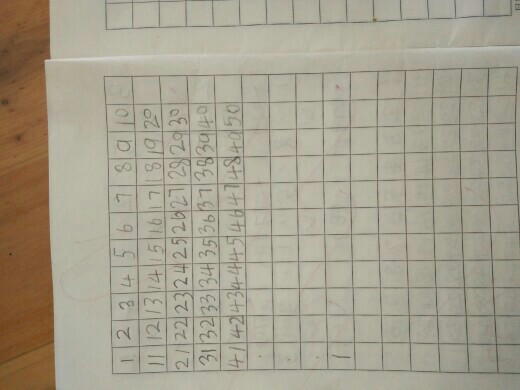 1 2 3 4 5 6 7 8 9 10
11 12 13 14 15 16 17 18 19 20
21 22 23 24 25 26 27 28 29 30
31 32 33 34 35 36 37 38 39 40
41 42 43 44 45 46 47 48 49 50
1